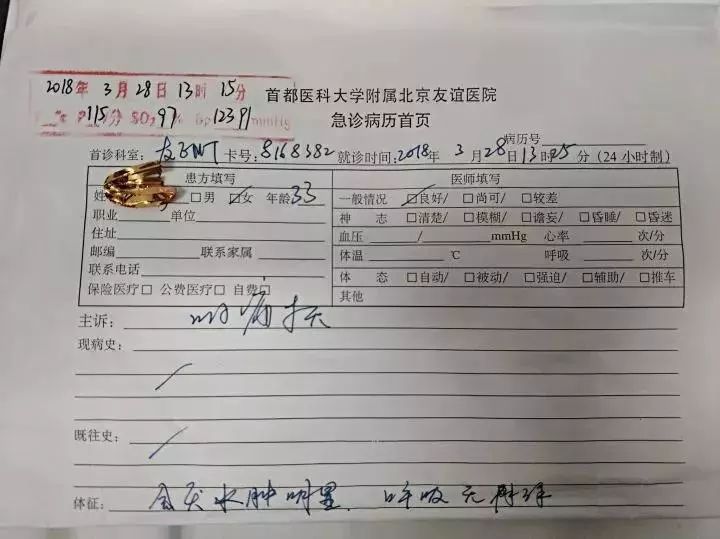 2018年 3月 28日 13时 15分
115分 SO₂ 97% Bp 123/91 mmHg
首都医科大学附属北京友谊医院
急诊病历首页
病历号
首诊科室： 卡号：8168382 就诊时间：2018年 3月28日13时25分（24小时制）
患方填写
姓 □男 ☑女 年龄33
职业 单位
住址
邮编 联系家属
联系电话
保险医疗□ 公费医疗□ 自费□
医师填写
一般情况 ☑良好/ □尚可/ □较差
神 志 □清楚/ □模糊/ □谵妄/ □昏睡/ □昏迷
血压 / mmHg 心率 次/分
体温 ℃ 呼吸 次/分
体 态 □自动/ □被动/ □强迫/ □辅助/ □推车
其他
主诉： 咽痛 天
现病史：
既往史：
体征： 会厌水肿明显. 呼吸无